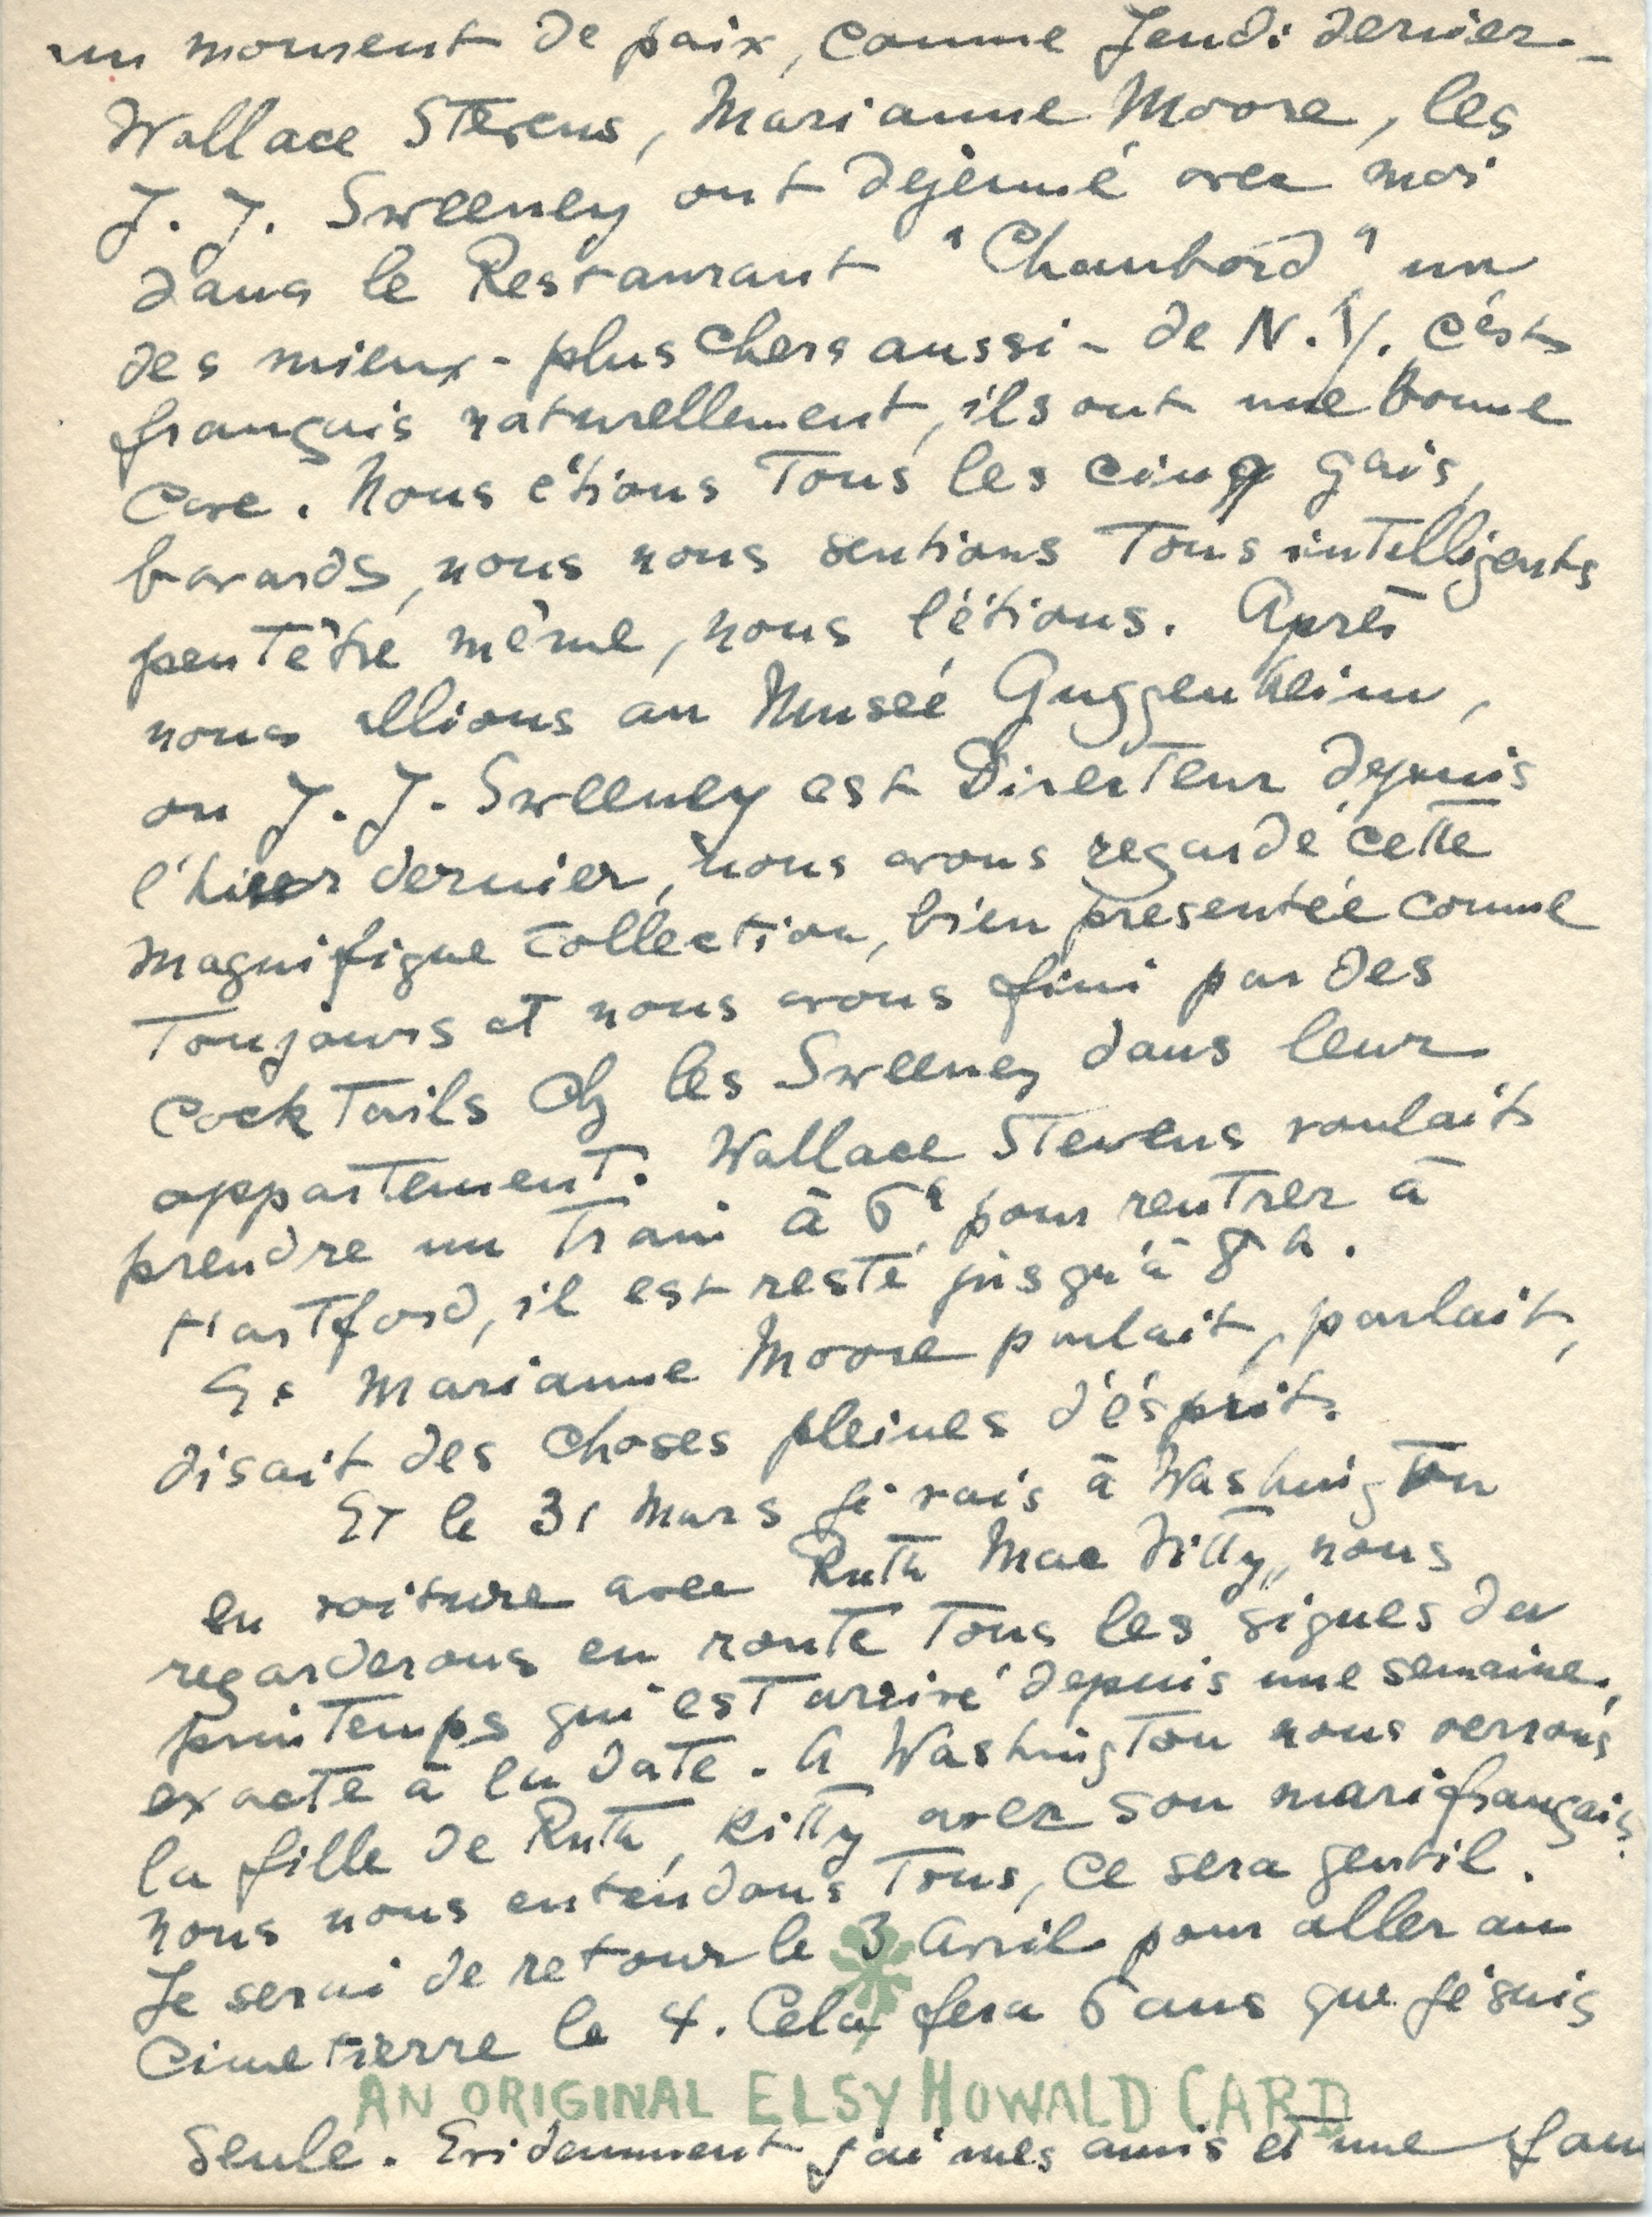 un moment de paix, comme Jeudi dernier.-
Wallace Stevens, Marianne Moore, les
J. J. Sweeney ont dejeuné avec moi
dans le Restaurant "Chambord" un
des mieux - plus chers aussi - de N.Y. c'est
français naturellement, ils ont une bonne
cave. Nous étions Tous les cinq gais,
bavards, nous nous sentions Tous intelligents
peutêtre même, nous l'étions. Après
nous allions au Museé Guggenheim,
ou J. J. Sweeney est Directeur depuis
l'hiver dernier, nous avons regardé cette
magnifique collection, bien presentée comme
Toujours et nous avons fini par des
cocktails ch les Sweeney dans leur
appartement. Wallace Stevens voulait
prendre un Train à 6h pour rentrer à
Hartford, il est resté jusqu'à 8 h.
Et Marianne Moore parlait, parlait,
disait des choses pleines d'ésprit.
Et le 31 Mars je vais à Washington
en voiture avec Ruth Mac Vitty, nous
regarderons en route Tous les signes du
printemps qui est arrivé depuis une semaine,
exacte à la date. A Washington nous verrons
la fille de Ruth, Kitty avec son mari français.
nous nous entendons Tous, ce sera gentil.
Je serai de retour le 3 Avril pour aller au
Cimetierre le 4. Cela fera 6 ans que je suis
AN ORIGINAL ELSY HOWALD CARD
Seule. Evidemment j'ai mes amis et une fam